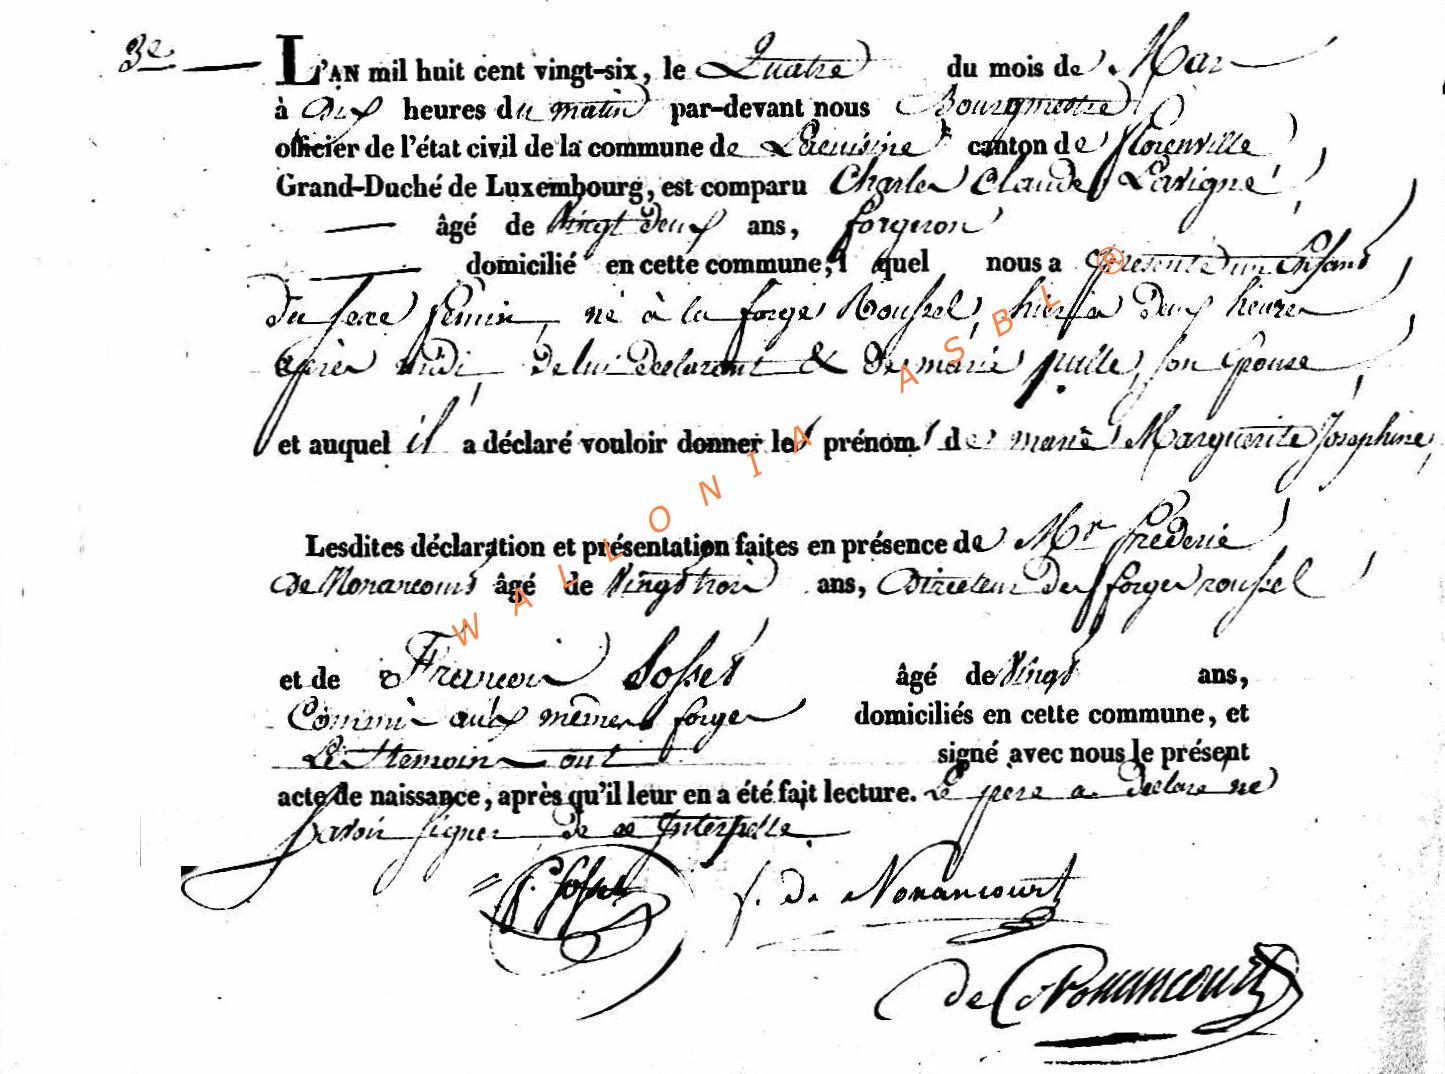 3e
L'AN mil huit cent vingt-six, le Quatre du mois de Mars
à dix heures du matin par-devant nous Bourgmestre
officier de l'état civil de la commune de Lacuisine canton de florenville
Grand-Duché de Luxembourg, est comparu Charles Claude Lavigne
âgé de Vingt deux ans, forgeron
domicilié en cette commune, l quel nous a présenté un Enfant
du sexe féminin, né à la forge Roussel, hier a deux heures
après midi, de lui declarant & de marie juille, son Epouse,
et auquel il a déclaré vouloir donner les prénoms de marie Marguerite Josephine,
Lesdites déclaration et présentation faites en présence de Mr fréderic
de Nonancourt âgé de Vingt trois ans, Directeur des forges roussel
et de François Josset âgé de Vingt ans,
Commis aux mêmes forges domiciliés en cette commune, et
Les temoins ont signé avec nous le présent
acte de naissance, après qu'il leur en a été fait lecture. Le père a declaré ne
savoir signer de ce Interpellé
f. Josset f. de Nonancourt
de Nonancourt
WALLONIA ASBL ®